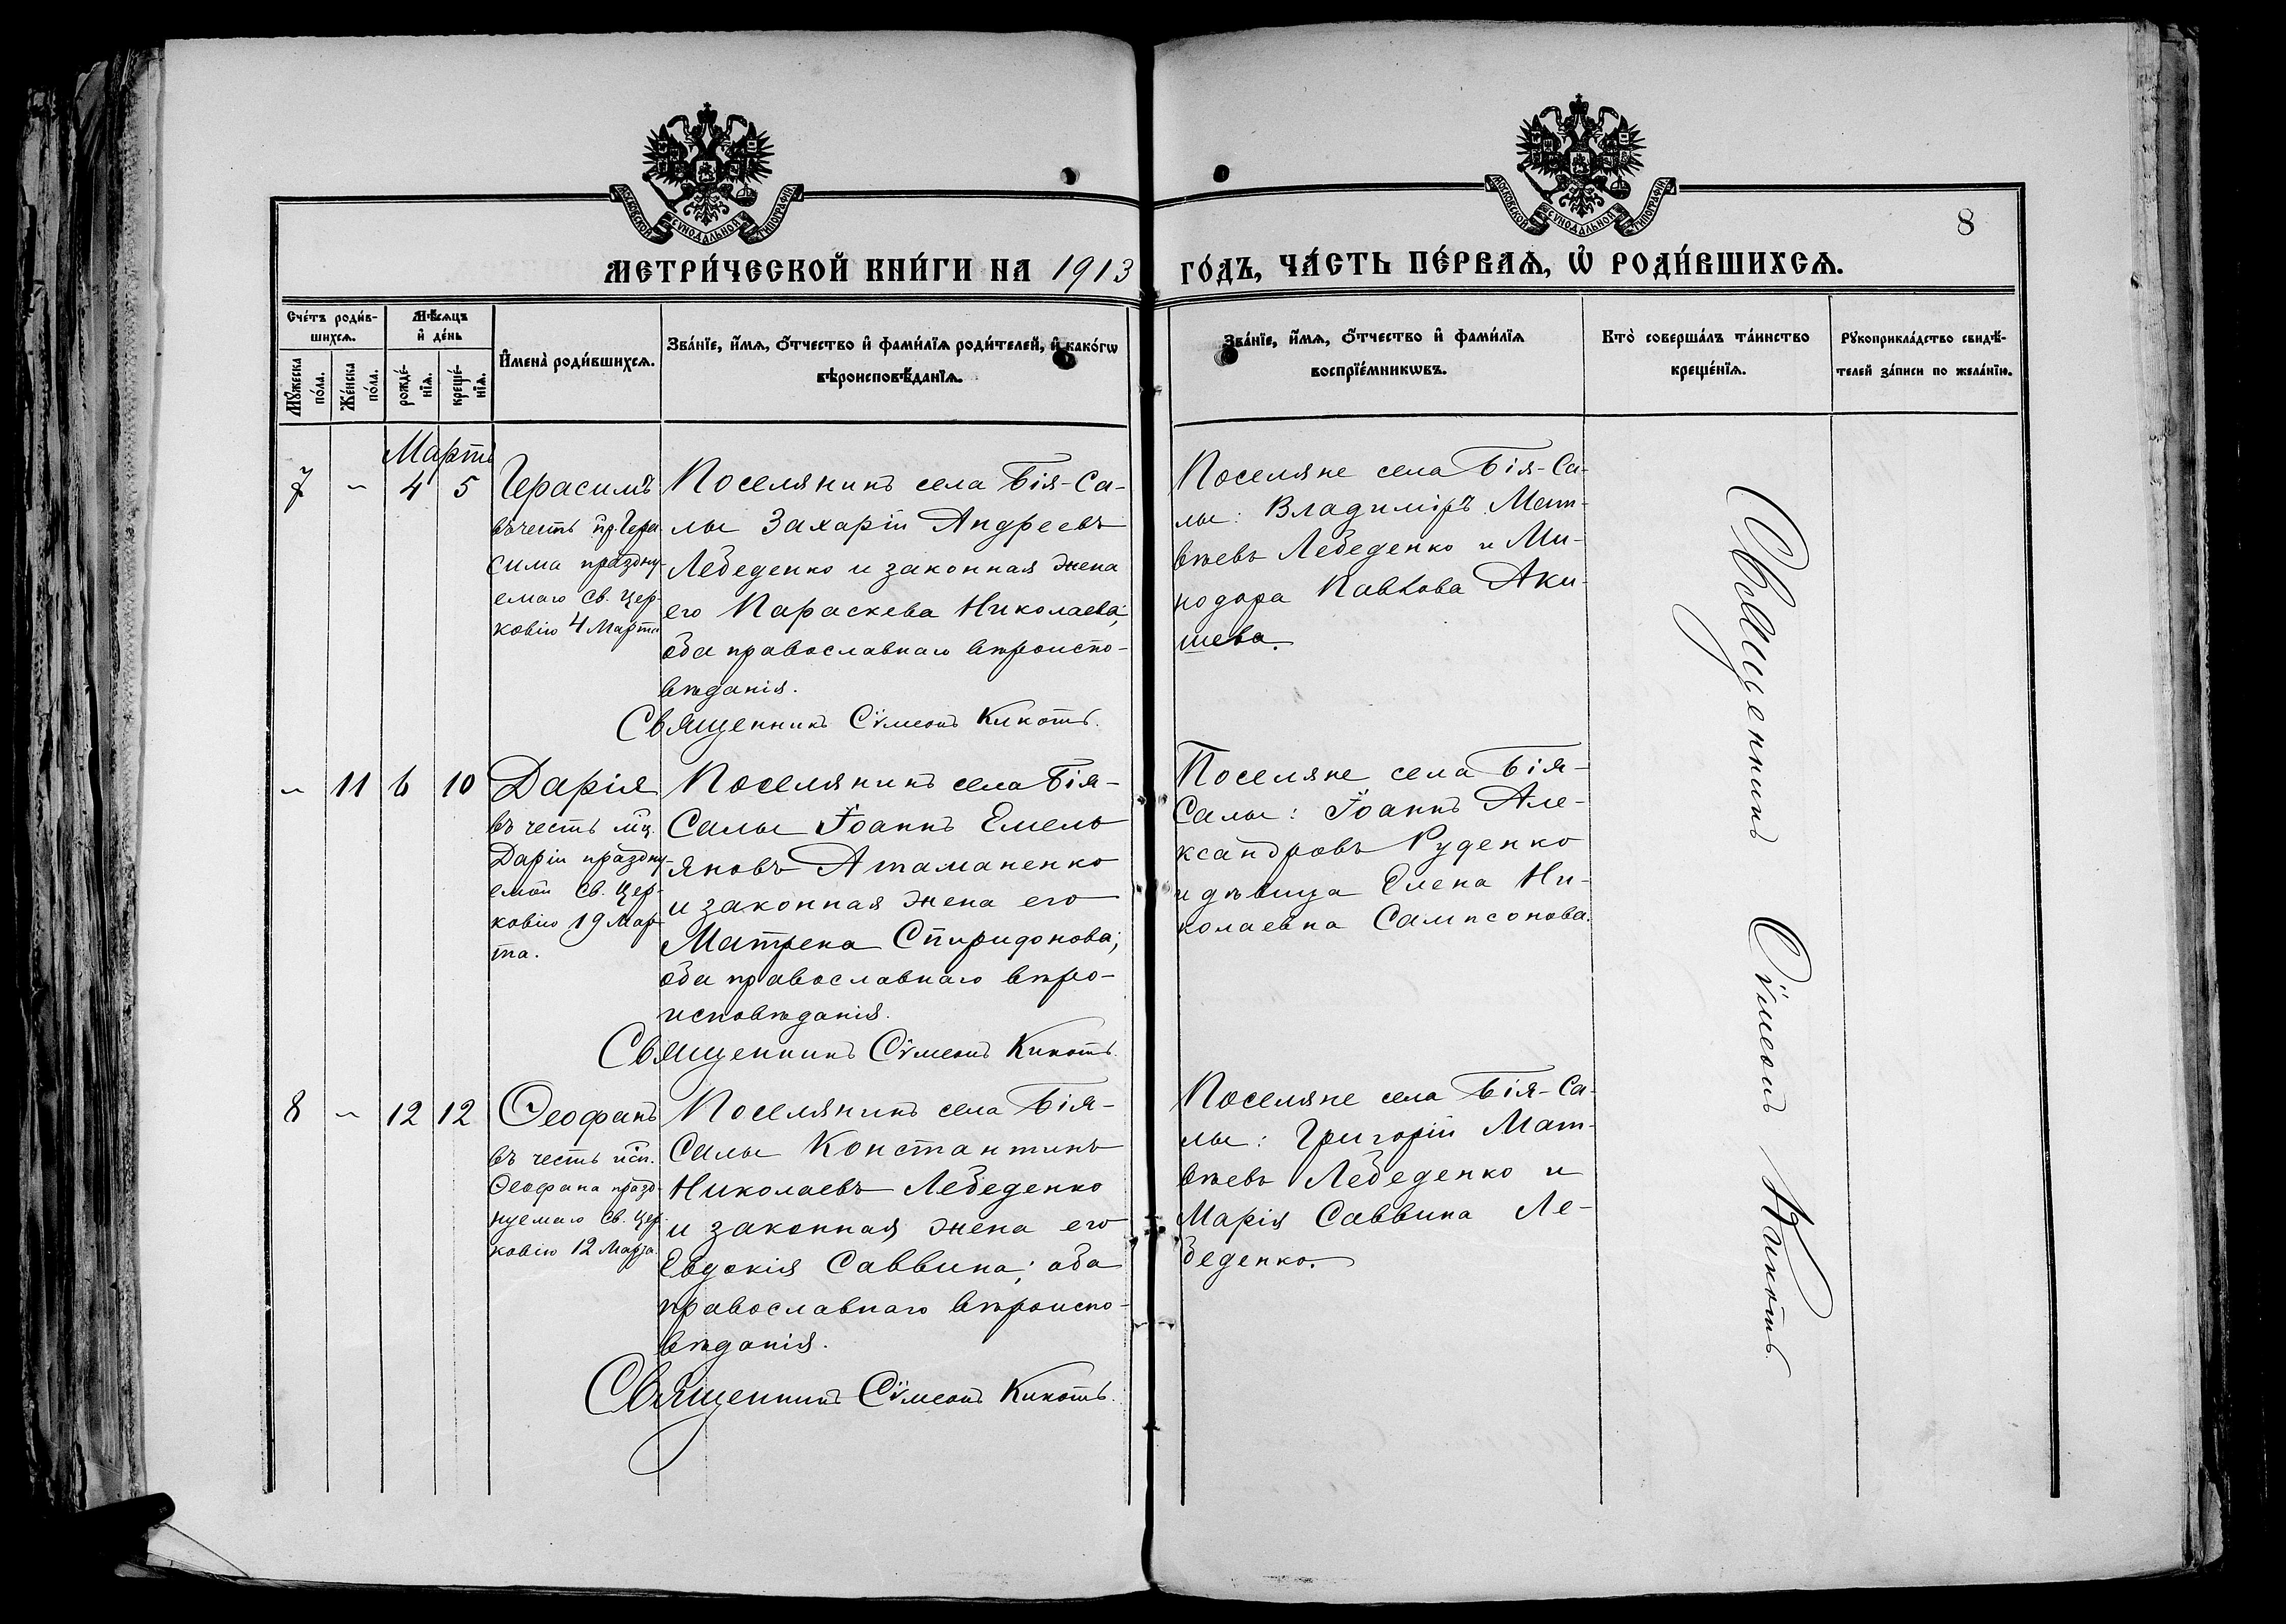 МОСКОВСКОЙ СѴНОДАЛЬНОЙ ТИПОГРАФІИ
МОСКОВСКОЙ СѴНОДАЛЬНОЙ ТИПОГРАФІИ
8
МЕТРИ́ЧЕСКОЙ КНИ́ГИ НА 1913 ГО́ДЪ, ЧА́СТЬ ПЕ́РВАѦ, Ѡ҆ РОДИ́ВШИХСѦ.
Сче́тъ роди́в-
шихсѧ.
Мѣ́сѧцъ
и҆ де́нь
Мꙋ́жеска
по́ла.
Же́нска
по́ла.
рожде́-
нїѧ.
креще́-
нїѧ.
И҆мена̀ роди́вшихсѧ.
Зва́нїе, и҆́мѧ, ѻ҆́тчество и҆ фами́лїѧ роди́телей, и҆ како́гѡ
вѣроисповѣ́данїѧ.
Зва́нїе, и҆́мѧ, ѻ҆́тчество и҆ фами́лїѧ
воспрїе́мникѡвъ.
Кто̀ соверша́лъ та́инство
креще́нїѧ.
Рꙋкоприкла́дство свидѣ́-
телей за́писи по жела́нїю.
Мартъ
7 – 4 5
Герасимъ
въ честь пр. Гера
сима праздну-
емаго Св. Цер-
ковію 4 Марта
Поселянинъ села Бія-Са-
лы Захарій Андреевъ
Лебеденко и законная жена
его Параскева Николаева;
оба православнаго вѣроиспо-
вѣданія.
Священникъ Сѵмеонъ Кикоть.
Поселяне села Бія-Са-
лы: Владиміръ Мат-
вѣевъ Лебеденко и Ми-
нодора Павлова Аки-
шева.
– 11 6 10
Дарія
въ честь мц.
Даріи праздну-
емой Св. Цер-
ковію 19 Мар-
та.
Поселянинъ села Бія-
Салы Іоаннъ Емель
яновъ Атаманенко
и законная жена его
Матрена Спиридонова;
оба православнаго вѣро-
исповѣданія.
Священникъ Сѵмеонъ Кикоть.
Поселяне села Бія-
Салы: Іоаннъ Але-
ксандровъ Руденко
и дѣвица Елена Ни-
колаевна Сампсонова.
8 – 12 12
Ѳеофанъ
въ честь исп.
Ѳеофана празд-
нуемаго Св. Цер-
ковію 12 Марта.
Поселянинъ села Бія-
Салы Константинъ
Николаевъ Лебеденко
и законная жена его
Евдокія Саввина; оба
православнаго вѣроиспо-
вѣданія.
Священникъ Сѵмеонъ Кикоть.
Поселяне села Бія-Са-
лы: Григорій Мат-
вѣевъ Лебеденко и
Марія Саввина Ле-
беденко.
Священникъ Сѵмеонъ Кикоть.